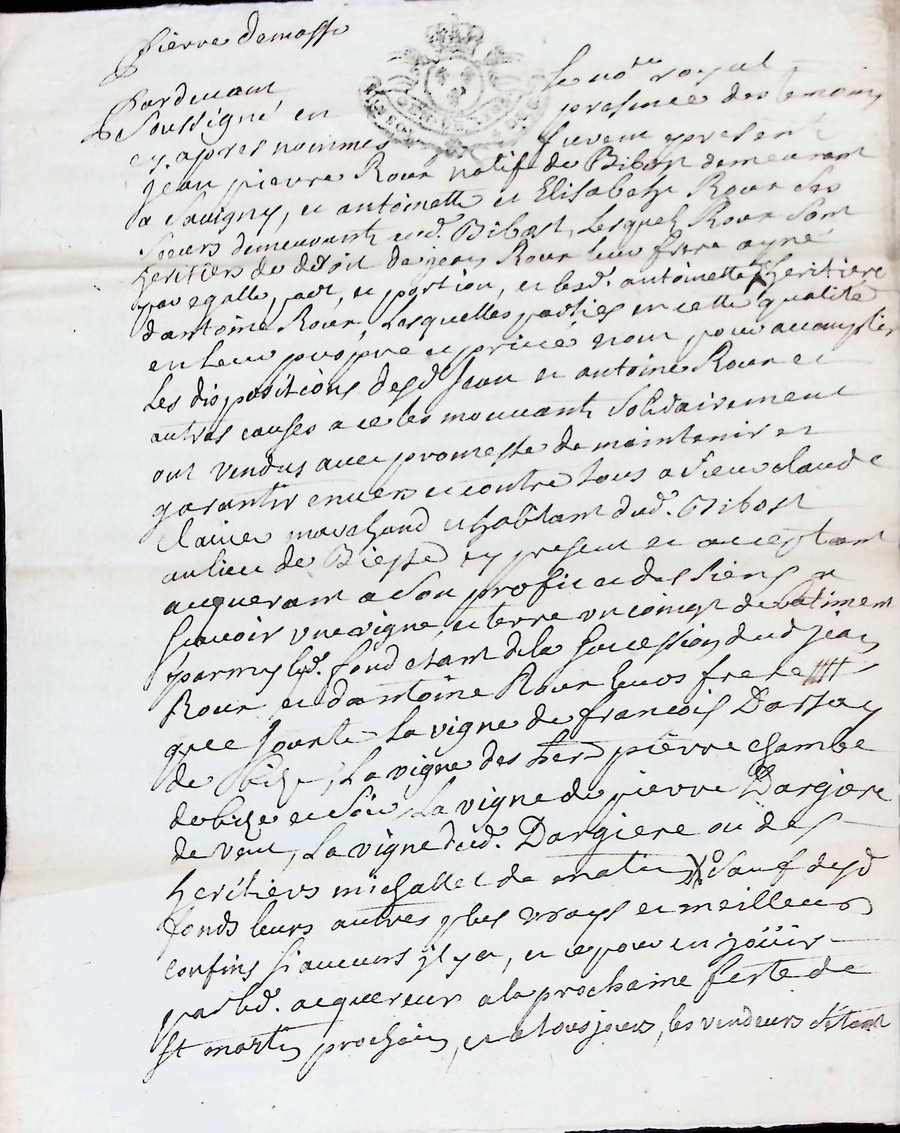 pierre demasse
Pardevant le no.re royal
Soussigné en presence des temoins
cy apres nommes furent present
jean pierre Roux natif de Bibost demeurant
a Savigny, et antoinette et Elisabeth Roux ses
Soeurs demeurants aud. Bibost, Lesquels Roux sont
heritier de droit de jean Roux leur frere ayné
par egalle part, et portion, et lesd. antoinette heritiere
dantoine Roux, Lesquelles parties en cette qualité
en leur propre et privé nom pour accomplir
Les dispositions desd. Jean et antoine Roux et
autres causes a ce les mouvants Solidairement
ont vendus avec promesse de maintenir et
garantir envers et contre tous a Sieur claude
marchand et habitant dud. Bibost
au lieu de cy present et acceptant
acquerant a son profit et des siens
Scavoir une vigne, et terre un coing de batiment
parmy led. fond etant de la Succession dud. jean
Roux et dantoine Roux leurs frere
que jouxte La vigne de francois
de bize, La vigne des her. pierre chambe
de bize et Soir, La vigne de pierre Dargiere
de vent, La vigne dud. Dargiere ou des
heritiers michallet de matin Sauf desd.
fonds leurs autres plus vrays et meilleurs
confins Si aucuns jl y a, et ce pour en joüir
par led. acquereur a la prochaine feste de
St martin prochain, et a tousjours, les vendeurs